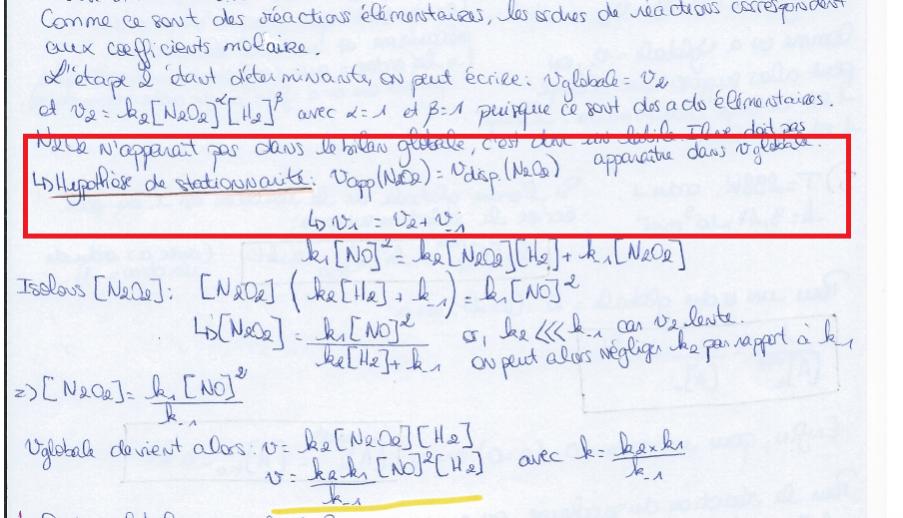 Comme ce sont des réactions élémentaires, les ordres de réactions correspondent
aux coefficients molaire.
L'étape 2 étant déterminante, on peut écrire : vglobale = v₂
et v₂ = k₂[N₂O₂]^α[H₂]^β avec α=1 et β=1 puisque ce sont des actes élémentaires.
N₂O₂ n'apparait pas dans le bilan globale, c'est donc un labile. Il ne doit pas
apparaître dans vglobale.
↳ Hypothèse de stationnarité : vapp(N₂O₂) = vdisp.(N₂O₂)
↳ v₁ = v₂ + v₋₁
k₁[NO]² = k₂[N₂O₂][H₂] + k₋₁[N₂O₂]
Isolons [N₂O₂] : [N₂O₂] (k₂[H₂] + k₋₁) = k₁[NO]²
↳ [N₂O₂] = k₁[NO]² / k₂[H₂] + k₋₁ or, k₂ <<< k₋₁ car v₂ lente.
on peut alors négliger k₂ par rapport à k₋₁
=> [N₂O₂] = k₁[NO]² / k₋₁
vglobale devient alors : v = k₂[N₂O₂][H₂]
v = k₂k₁ / k₋₁ [NO]²[H₂] avec k = k₂×k₁ / k₋₁